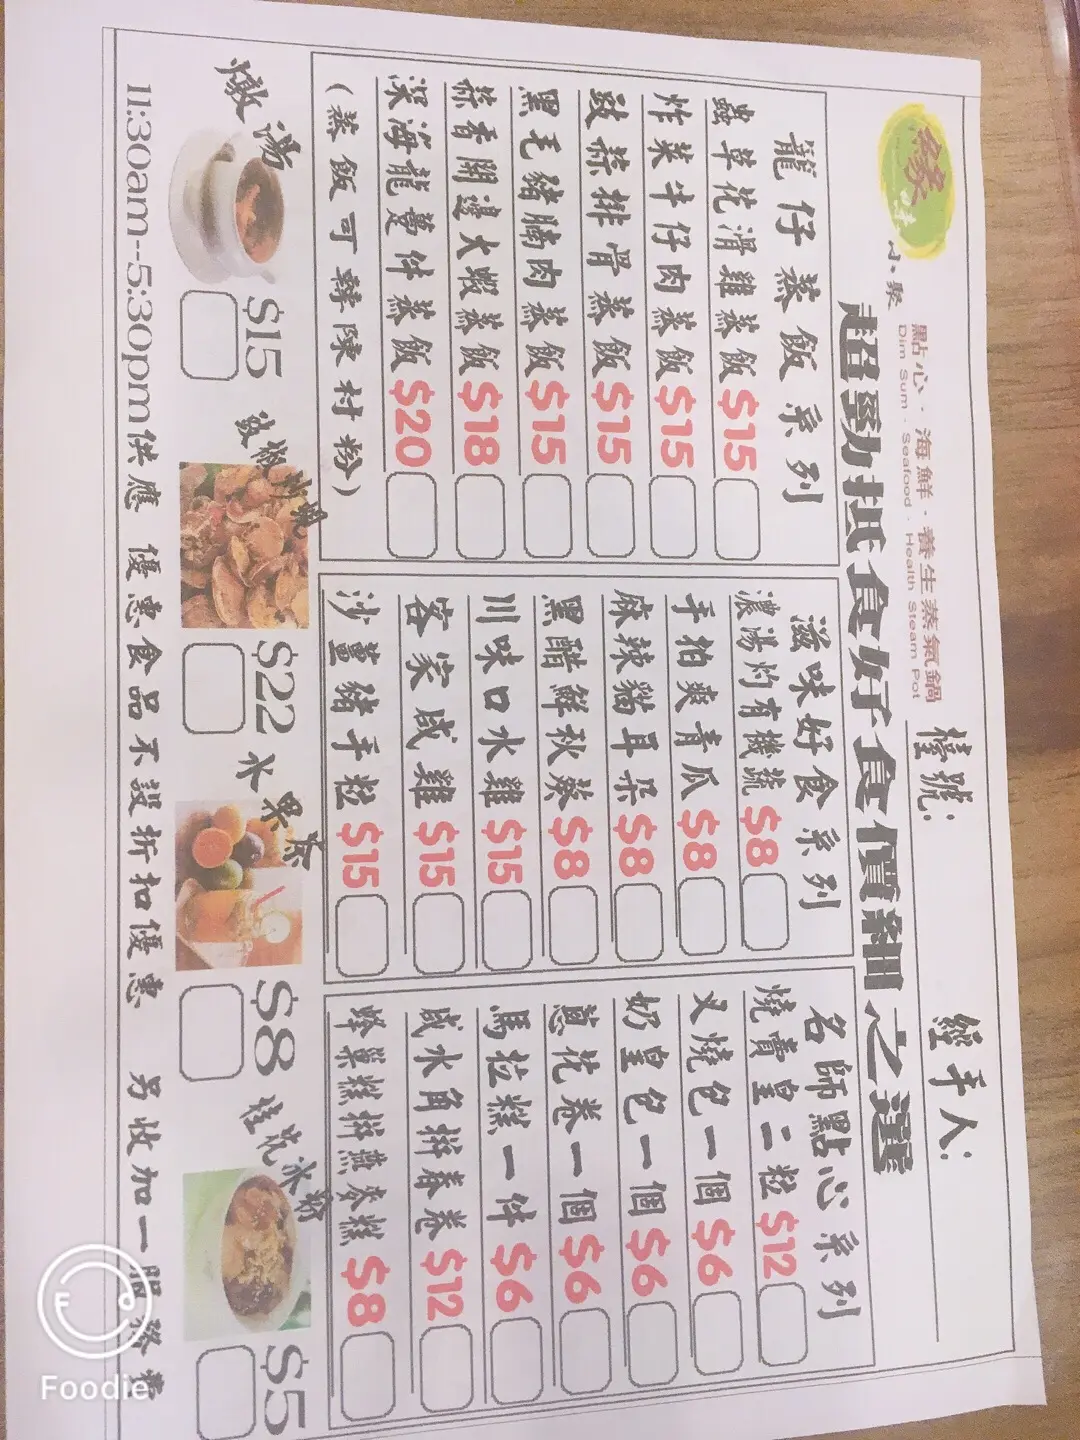 緣味
小聚
點心·海鮮·養生蒸氣鍋
Dim Sum · Seafood · Health Steam Pot
檯號:
經手人:
超勁抵食好食價細之選
籠仔蒸飯系列
蟲草花滑雞蒸飯 $15
炸菜牛仔肉蒸飯 $15
豉蒜排骨蒸飯 $15
黑毛豬腩肉蒸飯 $15
蒜香開邊大蝦蒸飯 $18
深海龍躉件蒸飯 $20
(蒸飯可轉陳村粉)
滋味好食系列
濃湯灼有機蔬 $8
手拍爽青瓜 $8
麻辣貓耳朵 $8
黑醋鮮秋葵 $8
川味口水雞 $15
客家咸雞 $15
沙薑豬手粒 $15
名師點心系列
燒賣皇二粒 $12
叉燒包一個 $6
奶皇包一個 $6
蔥花卷一個 $6
馬拉糕一件 $6
咸水角拼春卷 $12
蜂巢糕拼燕麥糕 $8
燉湯 $15
豉椒炒蜆 $22
水果茶 $8
桂花冰粉 $5
11:30am--5:30pm供應 優惠食品不設折扣優惠 另收加一服務費
Foodie